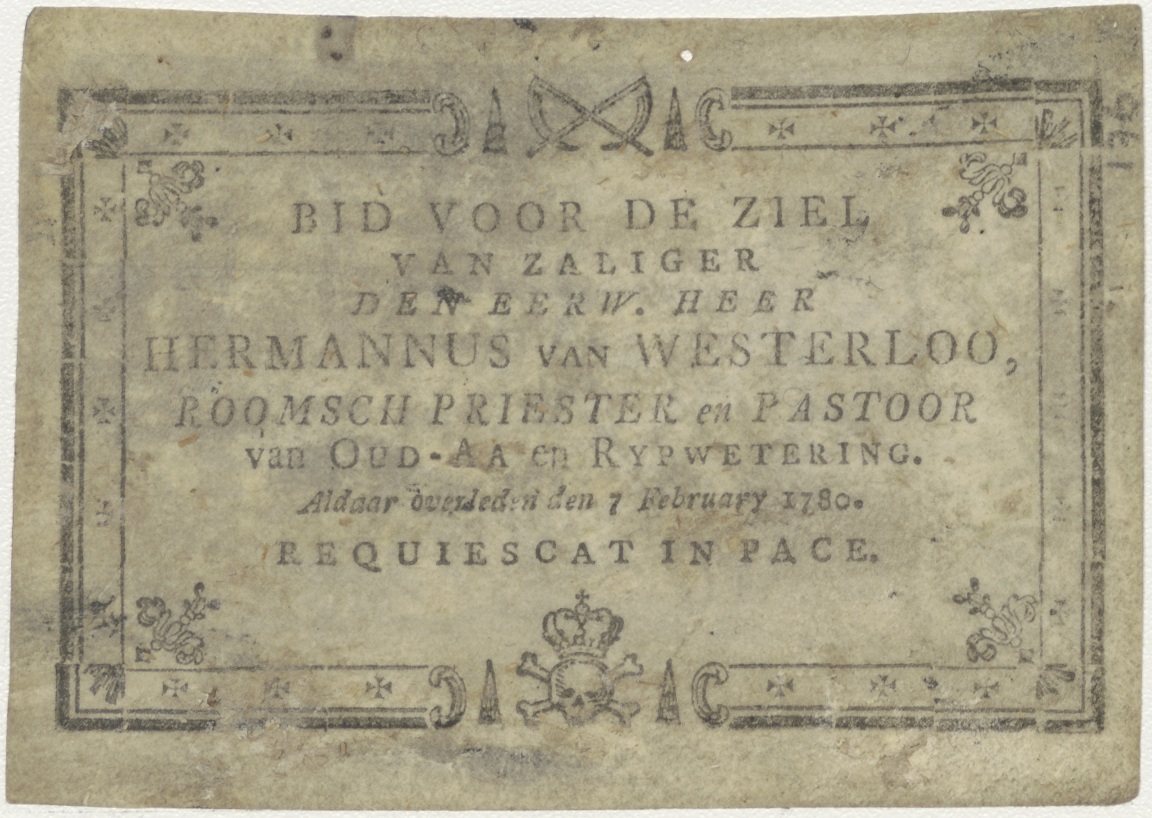 BID VOOR DE ZIEL
VAN ZALIGER
DEN EERW. HEER
HERMANNUS VAN WESTERLOO,
ROOMSCH PRIESTER en PASTOOR
van OUD-AA en RYPWETERING.
Aldaar overleden den 7 February 1780.
REQUIESCAT IN PACE.